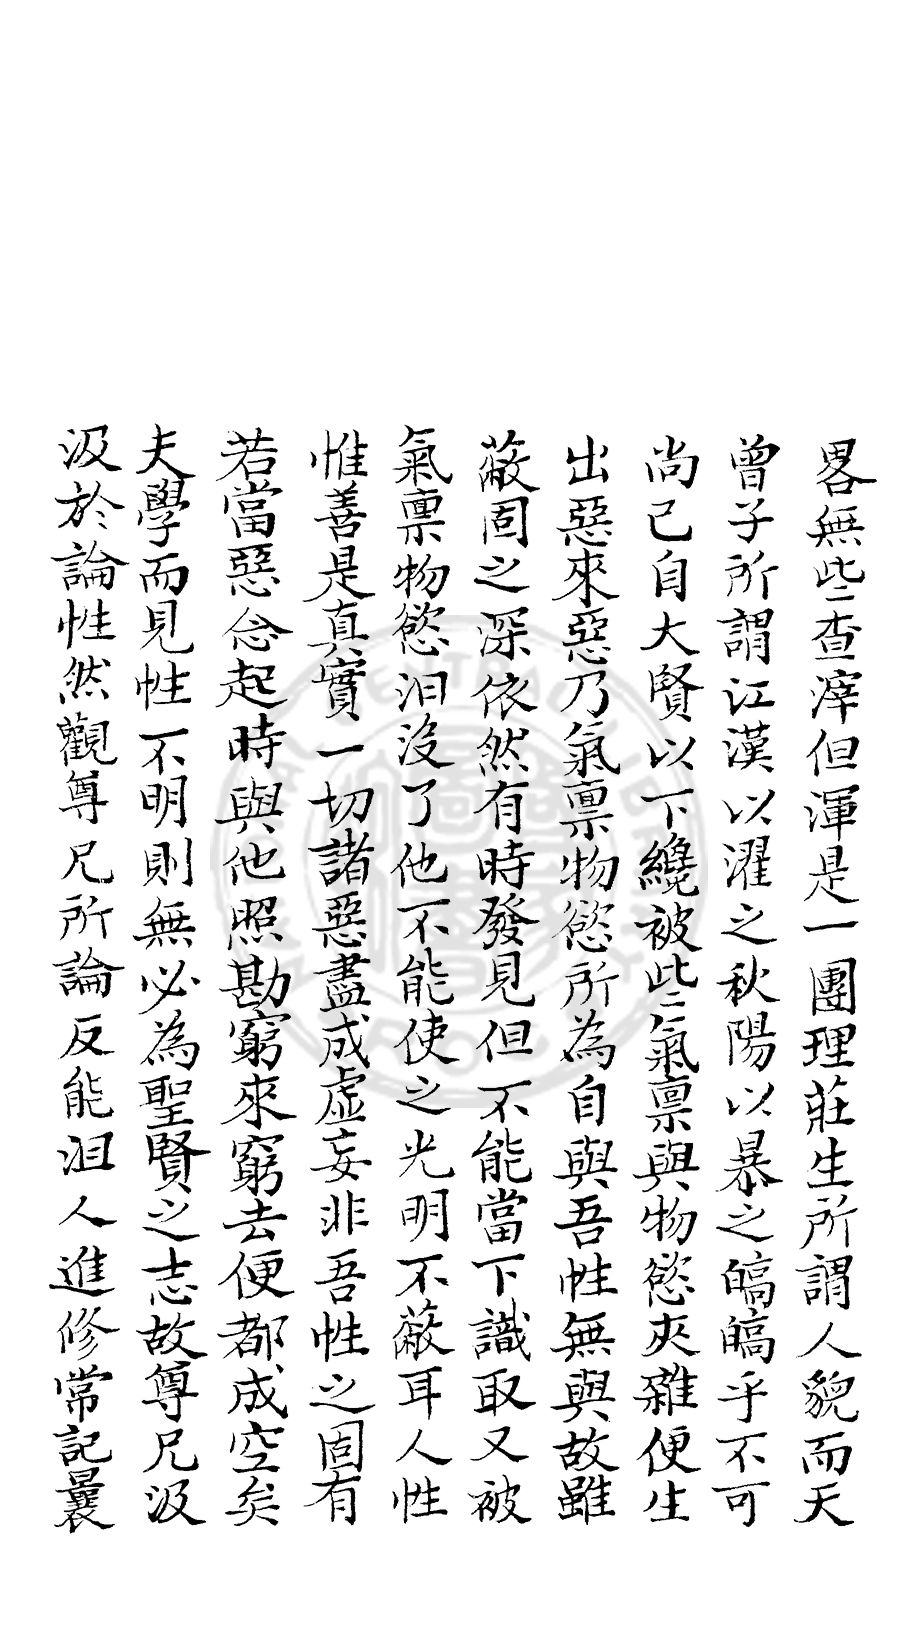 畧無些查滓但渾是一團理莊生所謂人貌而天
曾子所謂江漢以濯之秋陽以暴之皜皜乎不可
尚已自大賢以下纔被些氣禀與物慾夾雜便生
出惡來惡乃氣禀物慾所為自與吾性無與故雖
蔽固之深依然有時發見但不能當下識取又被
氣禀物慾汩沒了他不能使之光明不蔽耳人性
惟善是真實一切諸惡盡成虛妄非吾性之固有
若當惡念起時與他照勘窮來窮去便都成空矣
夫學而見性不明則無必為聖賢之志故尊兄汲
汲於論性然觀尊兄所論反能沮人進修常記曩